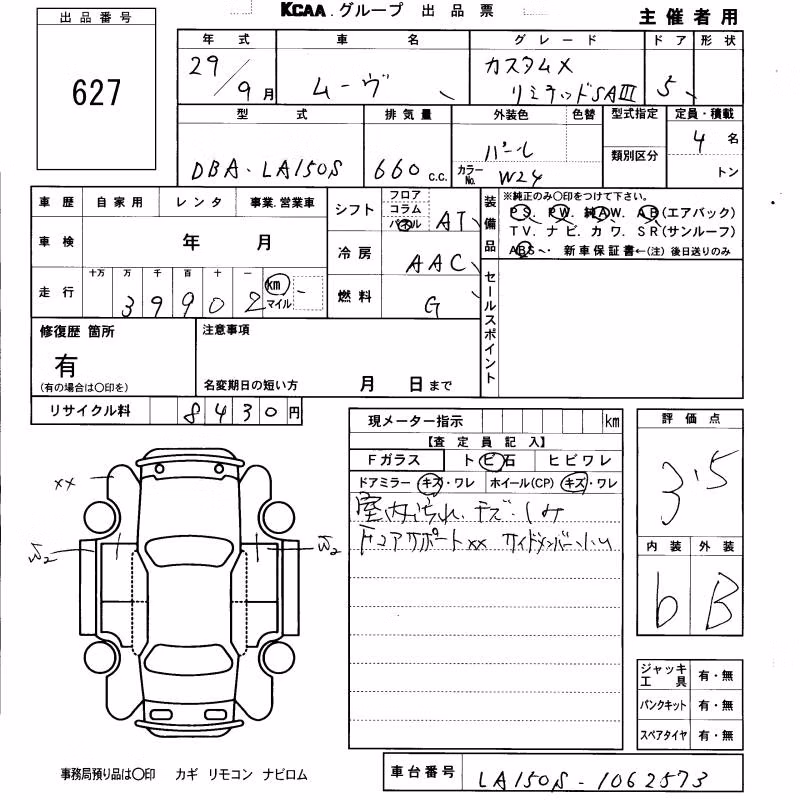 KCAA.グループ 出品票
主催者用
出品番号
627
年式 車名 グレード ドア 形状
29/9月 ムーヴ カスタムX
リミテッドSAⅢ 5
型式 排気量 外装色 色替 型式指定 定員・積載
DBA-LA150S 660 c.c. パール 4名
類別区分
カラーNo. W24 トン
車歴 自家用 レンタ 事業.営業車
車検 年 月
走行 十万 万 千 百 十 一
39902 km マイル
シフト フロア コラム パネル AT
冷房 AAC
燃料 G
装備品
※純正のみ〇印をつけて下さい。
PS. PW. 純AW. AB(エアバック)
TV. ナビ. カワ. SR(サンルーフ)
ABS 新車保証書←(注)後日送りのみ
セールスポイント
修復歴 箇所
有
(有の場合は〇印を)
注意事項
名変期日の短い方 月 日まで
リサイクル料 8430円
現メーター指示 km
【査定員記入】
Fガラス トビ石 ヒビワレ
ドアミラー キズ・ワレ ホイール(CP) キズ・ワレ
室内汚れ.キズ.しみ
コアサポートxx サイドメンバー小
評価点
3.5
内装 外装
b B
xx
W2
W2
ジャッキ工具 有・無
パンクキット 有・無
スペアタイヤ 有・無
事務局預り品は〇印 カギ リモコン ナビロム
車台番号 LA150S-1062573